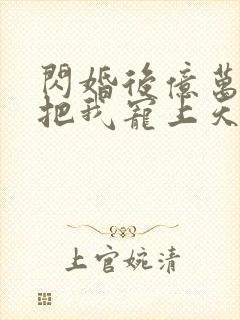 閃婚後億萬
把我寵上天
上官婉清